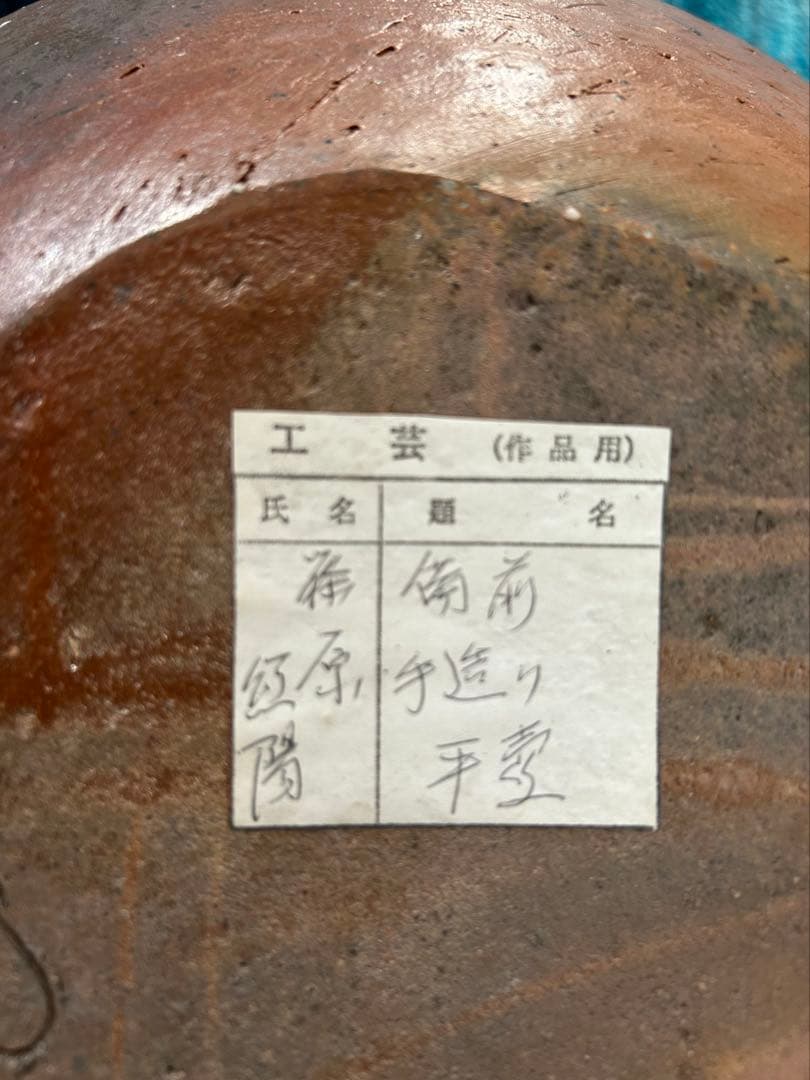 工芸 (作品用)
氏名 題名
篠原
陽
備前
手造り
平壺